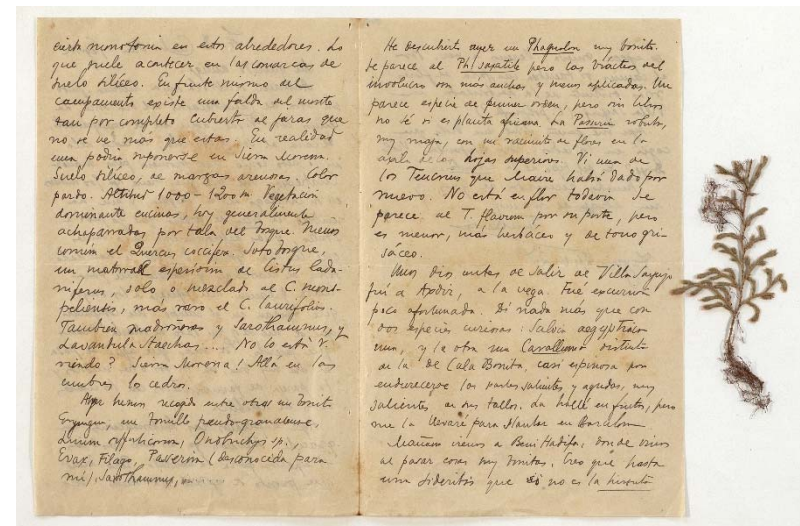 cierta monotonía en estos alrededores. Lo
que suele acontecer en las comarcas de
suelo silíceo. En frente mismo del
campamento existe una falda del monte
tan por completo cubierto de jaras que
no se ve más que estas. En realidad
uno podría suponerse en Sierra Morena.
Suelo silíceo, de margas arenosas. Color
pardo. Altitud 1000-1200 m. Vegetación
dominante encinas, hoy generalmente
achaparradas por tala del bosque. Menos
común el Quercus coccifera. Sotobosque,
un matorral espesísimo de Cistus lada-
niferus, solo o mezclado al C. mons-
peliensis, más raro el C. laurifolius.
También madroños y Sarothamnus, y
Lavandula Stoechas.... No lo está V.
viendo? Sierra Morena! Allá en las
cumbres los cedros.
Ayer hemos recogido entre otros un bonito
Eryngium, un tomillo pseudo-granatense,
Linum suffruticosum, Onobrychis sp.,
Evax, Filago, Passerina (desconocida para
mí), Sarothamnus,
He descubierto ayer un Phagnalon muy bonito.
Se parece al Ph. saxatile pero las brácteas del
involucro son más anchas y menos aplicadas. Me
parece especie de primer orden, pero sin libros
no sé si es planta africana. La Passerina robusta,
muy maja, con un racimito de flores en la
axila de las hojas superiores. Vi uno de
los Teucrium que Maire había dado por
nuevo. No está en flor todavía. Se
parece al T. flavum por su porte, pero
es menor, más herbáceo y de tono gri-
sáceo.
Unos días antes de salir de Villa Sanjurjo
fui a Axdir, a la vega. Fué excursión
poco afortunada. Dí nada más que con
dos especies curiosas: Salvia aegyptiaca
una, y la otra una Caralluma distinta
de la de Cala Bonita, casi espinosa por
endurecerse las partes salientes y agudas, muy
salientes de sus tallos. La hallé en frutos, pero
me la llevaré para plantar en Barcelona
Mañana vamos a Beni Hadifa, donde vimos
al pasar cosas muy bonitas. Creo que hasta
una Sideritis que no es la hirsuta